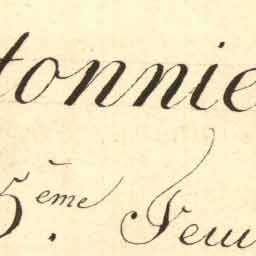 tonnie
5.ème Feui